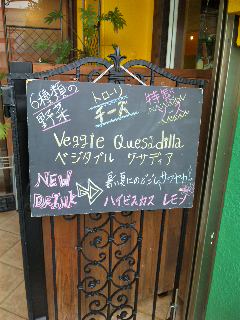 6種類の
野菜
トローリ
チーズ
特製
ソース
Veggie Quesadilla
ベジタブル ケサディア
NEW
DRINK
暑い夏にのどごしサワヤカ!
ハイビスカス レモン